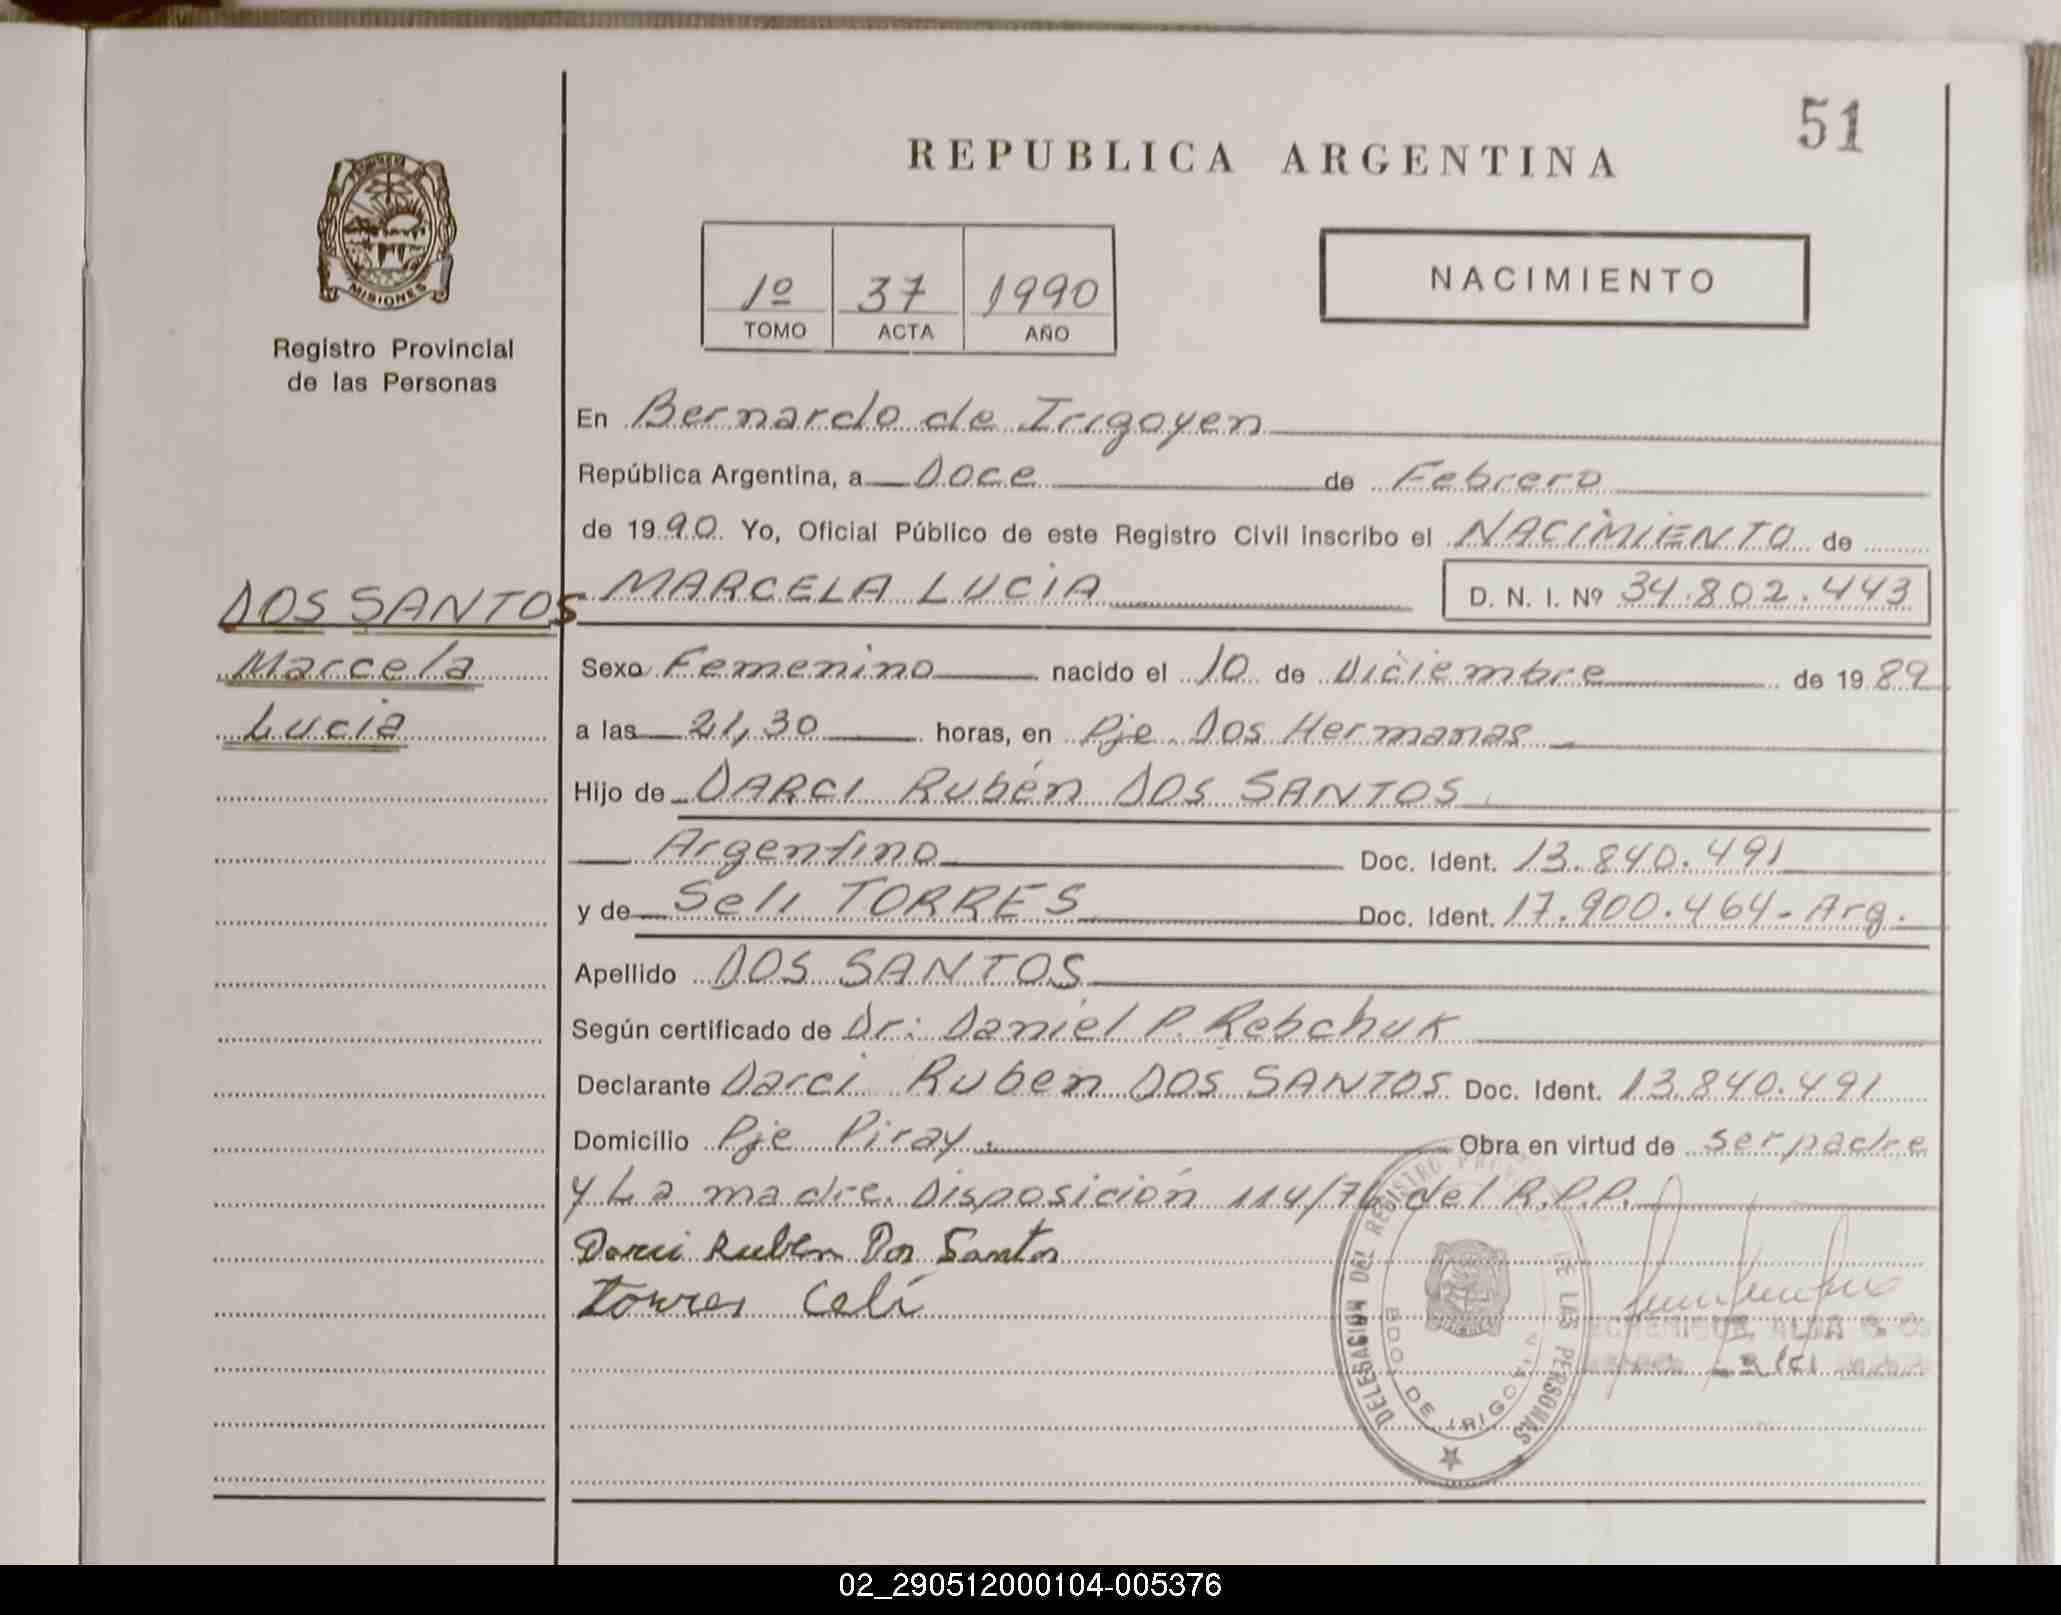 51
REPUBLICA ARGENTINA
MISIONES
Registro Provincial
de las Personas
1º 37 1990
TOMO ACTA AÑO
NACIMIENTO
En Bernardo de Irigoyen
República Argentina, a Doce de Febrero
de 1990. Yo, Oficial Público de este Registro Civil inscribo el NACIMIENTO de
DOS SANTOS MARCELA LUCIA D. N. I. Nº 34.802.443
Marcela
Lucia
Sexo Femenino nacido el 10 de Diciembre de 1989
a las 21,30 horas, en Pje. Dos Hermanas
Hijo de DARCI Rubén DOS SANTOS
Argentino Doc. Ident. 13.840.491
y de Seli TORRES Doc. Ident. 17.900.464- Arg.
Apellido DOS SANTOS
Según certificado de Dr: Daniel P. Rebchuk
Declarante Darci Ruben DOS SANTOS Doc. Ident. 13.840.491
Domicilio Pje Piray. Obra en virtud de ser padre
y La madre. Disposición 114/76 del R.P.P.
Darci Ruben Dos Santos
Torres Celi
DELEGACION DEL REGISTRO DE LAS PERSONAS
BDO. DE IRIGOYEN
02_290512000104-005376